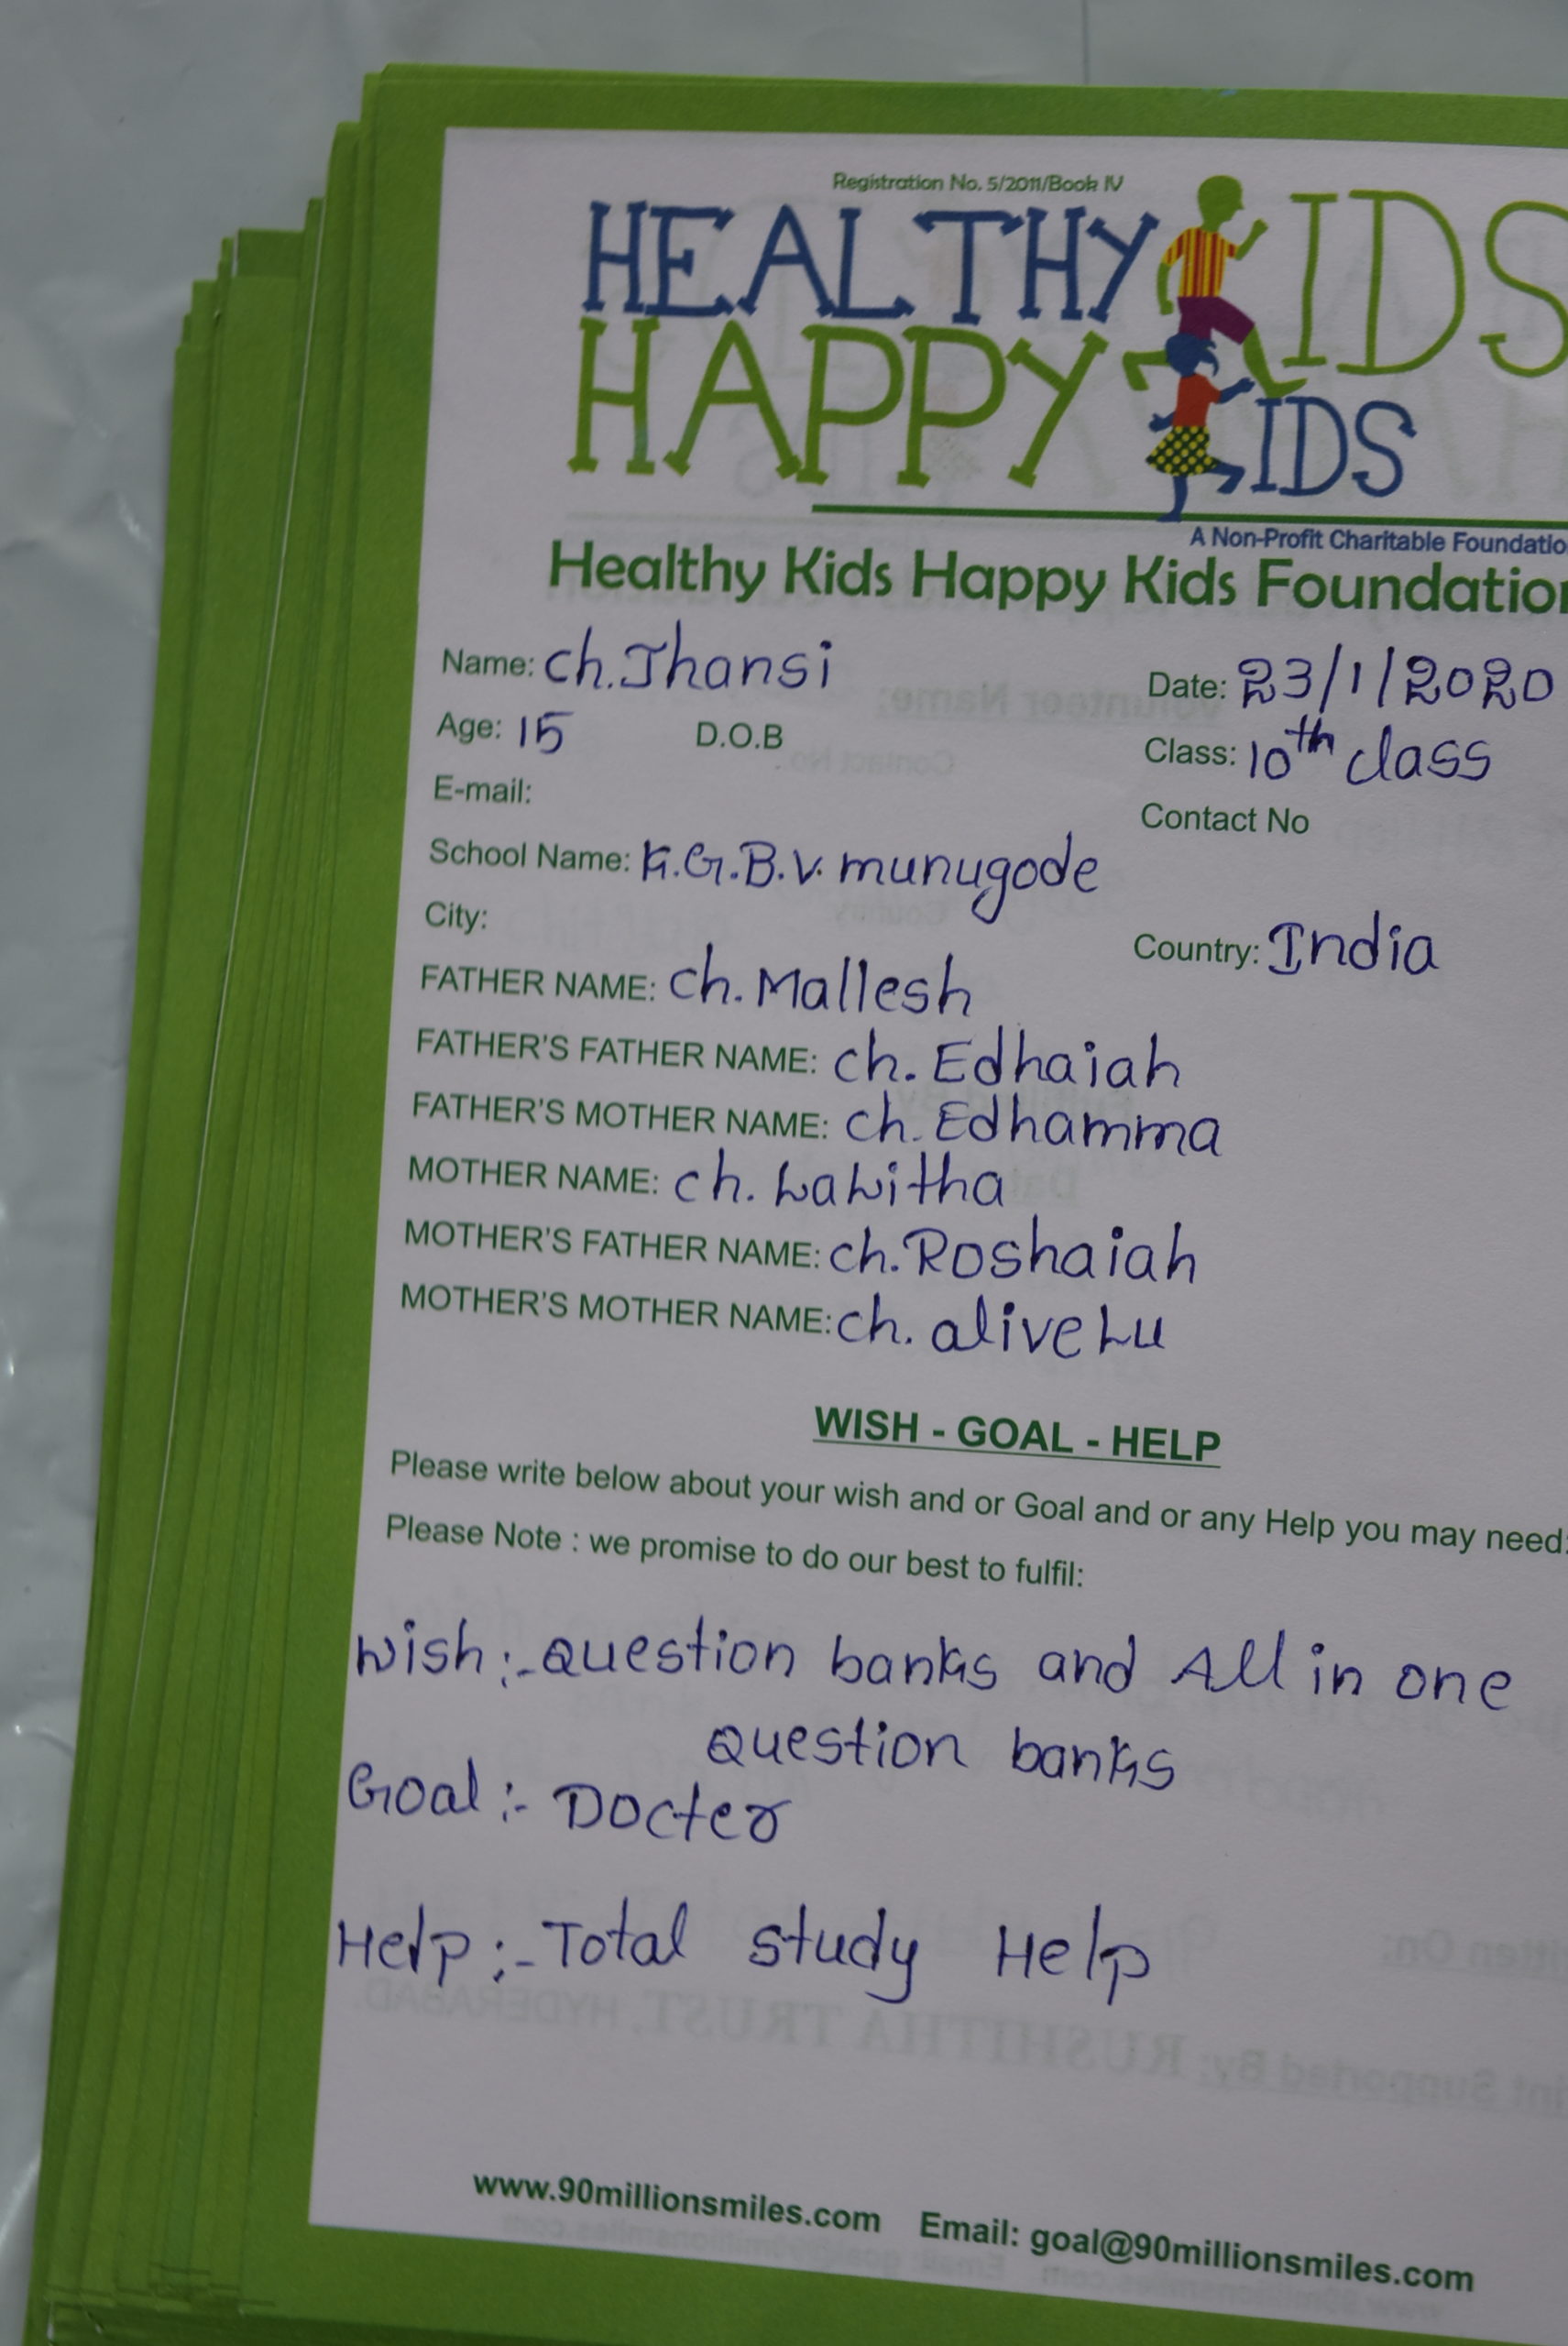 Registration No. 5/2011/Book IV
HEALTHY KIDS
HAPPY KIDS
A Non-Profit Charitable Foundatio
Healthy Kids Happy Kids Foundation
Name: ch.Jhansi
Date: 23/1/2020
Age: 15 D.O.B
Class: 10th class
E-mail:
Contact No
School Name: K.G.B.V. munugode
City:
Country: India
FATHER NAME: ch. Mallesh
FATHER'S FATHER NAME: ch. Edhaiah
FATHER'S MOTHER NAME: ch. Edhamma
MOTHER NAME: ch. Lalitha
MOTHER'S FATHER NAME: ch. Roshaiah
MOTHER'S MOTHER NAME: ch. aliveLu
WISH - GOAL - HELP
Please write below about your wish and or Goal and or any Help you may need:
Please Note : we promise to do our best to fulfil:
Wish :- Question banks and All in one
Question banks
Goal :- Docter
Help :- Total study Help
www.90millionsmiles.com Email: goal@90millionsmiles.com